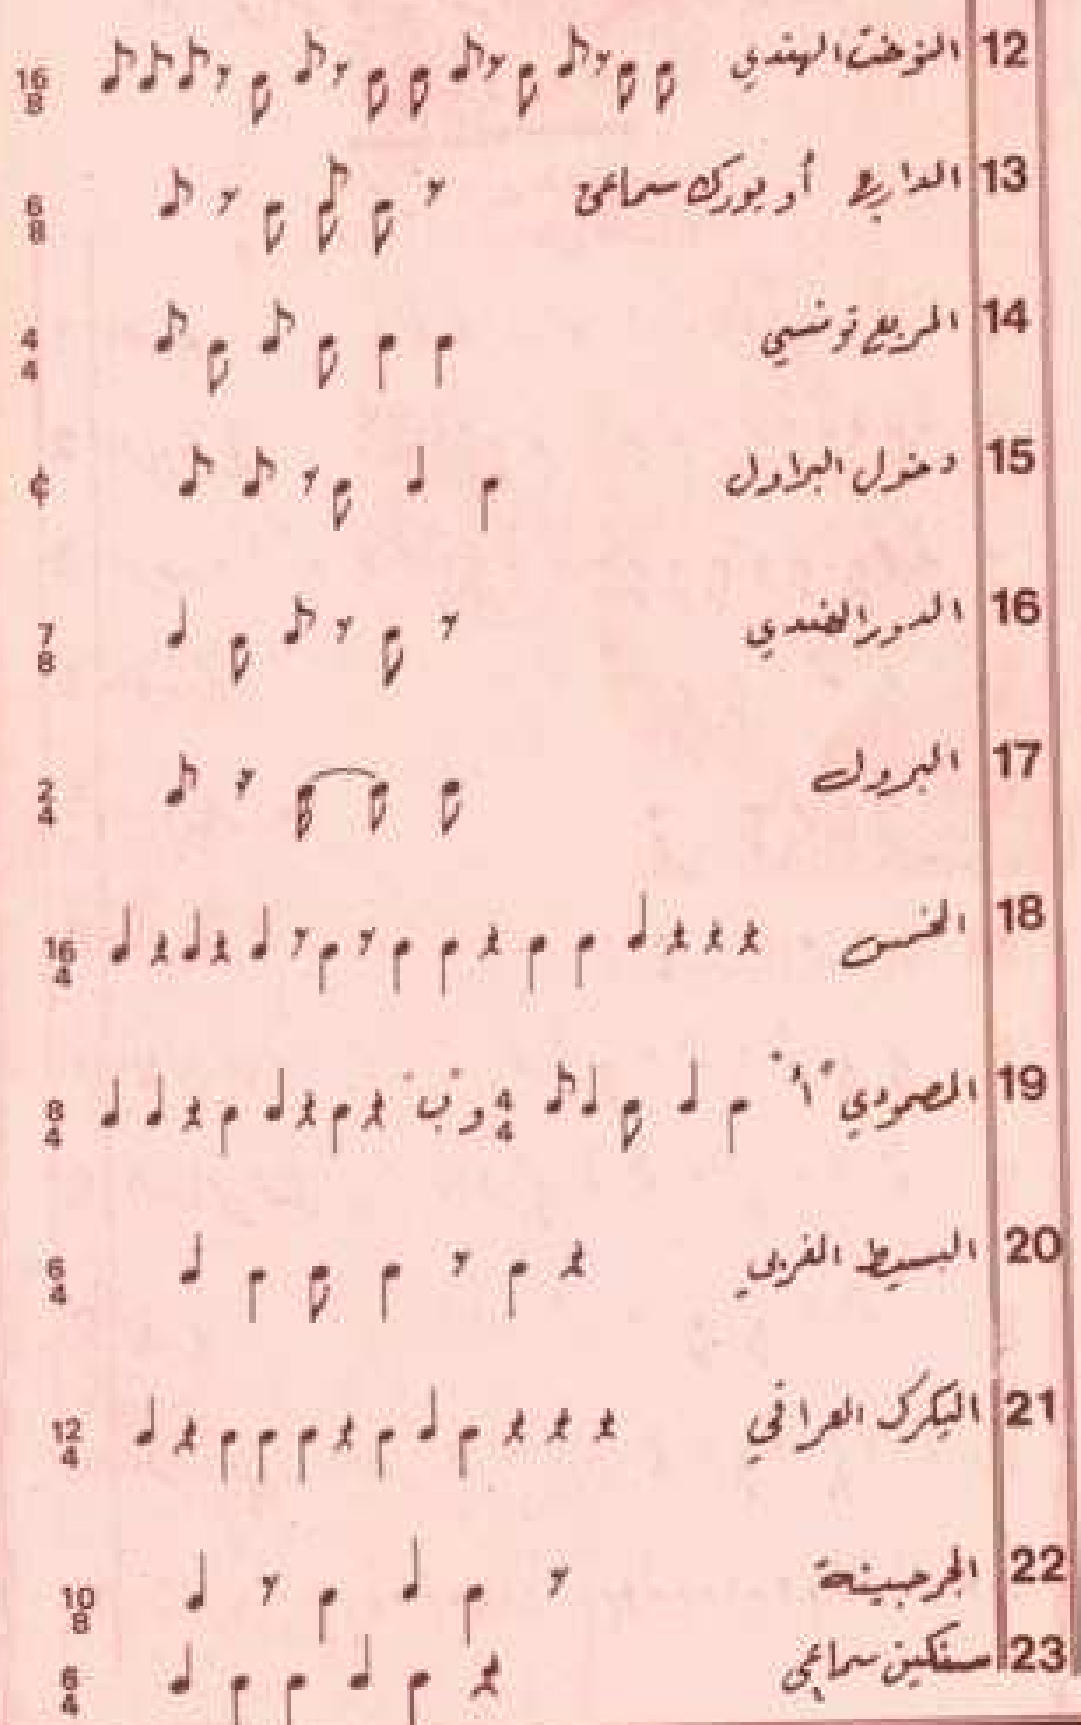 12 النوخت الهندي 16/8
13 الدارج أو يورك سماعي 6/8
14 المربع تونسي 4/4
15 دخول البراول
16 الدور الهندي 7/8
17 البرول 2/4
18 المخمس 16/4
19 المصمودي "أ" 4/4 و"ب" 8/4
20 البسيط المغربي 6/4
21 اليكرك العراقي 12/4
22 الجرجينة 10/8
23 سنكين سماعي 6/4